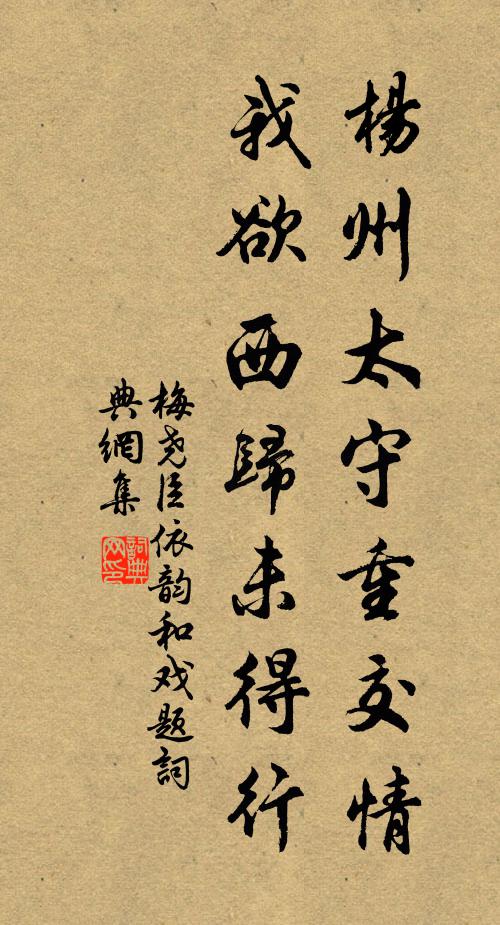 楊州太守重交情
我欲西歸未得行
梅堯臣依韵和戏题詞
典網集
詞典
网印